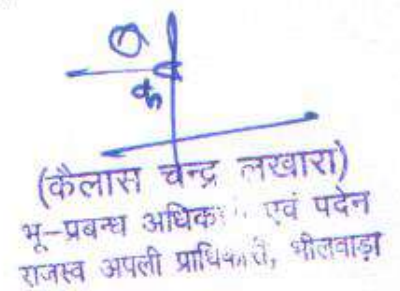 (कैलास चन्द्र लखारा)
भू-प्रबन्ध अधिका एवं पदेन
राजस्व अपली प्राधिकारी, भीलवाड़ा